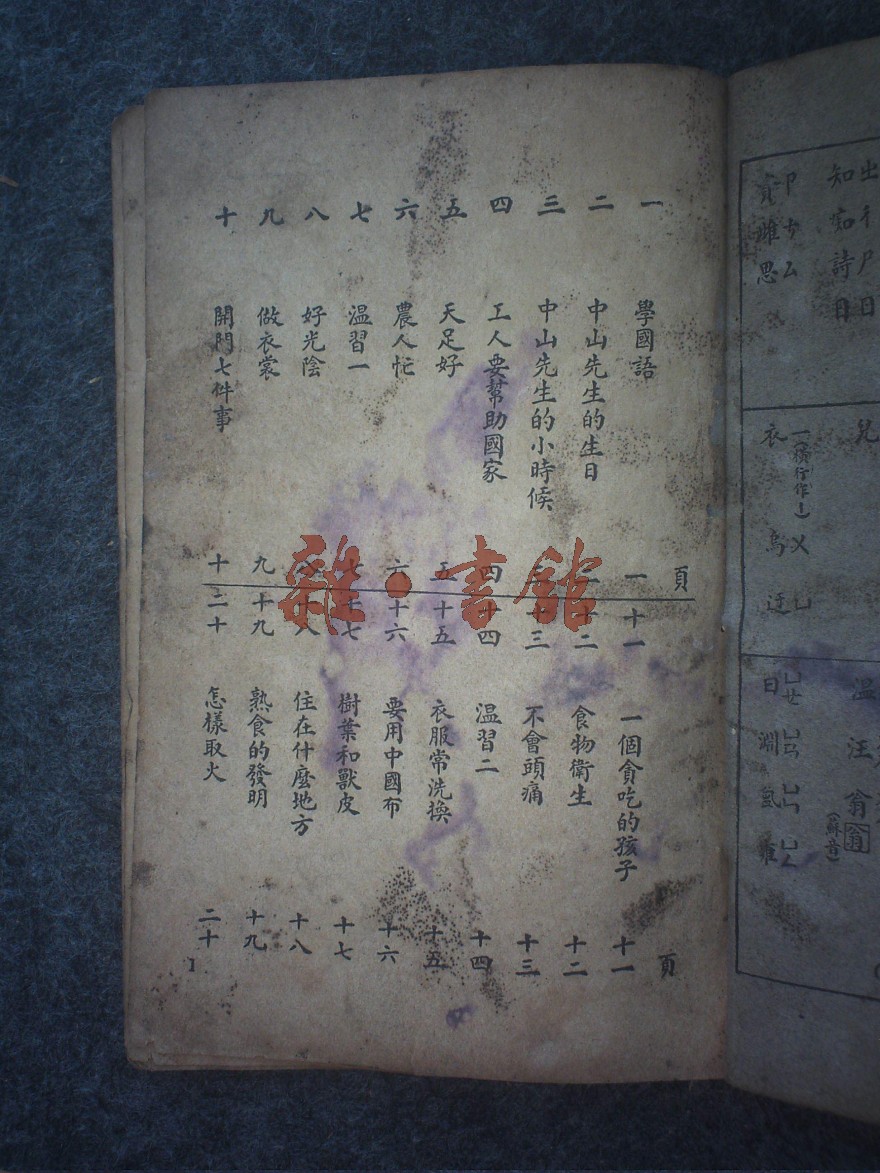 頁
一 學國語 一
二 中山先生的生日 二
三 中山先生的小時候 三
四 工人要幫助國家 四
五 天足好 五
六 農人忙 六
七 温習一 七
八 好光陰 八
九 做衣裳 九
十 開門七件事 十
頁
十一 一個貪吃的孩子 十一
十二 食物衛生 十二
十三 不會頭痛 十三
十四 温習二 十四
十五 衣服常洗換 十五
十六 要用中國布 十六
十七 樹葉和獸皮 十七
十八 住在什麼地方 十八
十九 熟食的發明 十九
二十 怎樣取火 二十
1
雜·書館
ㄓㄔㄕㄖ
知痴詩日
ㄗㄘㄙ
資雌思
兒
一(橫行作丨)ㄨㄩ
衣烏迂
温汪翁翁
(蘇音)
ㄩㄝ ㄩㄢ ㄩㄣ ㄩㄥ
曰淵氳雍